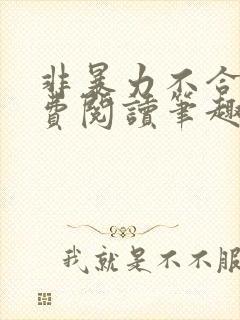 非暴力不合
費閱讀筆趣
我就是不不服